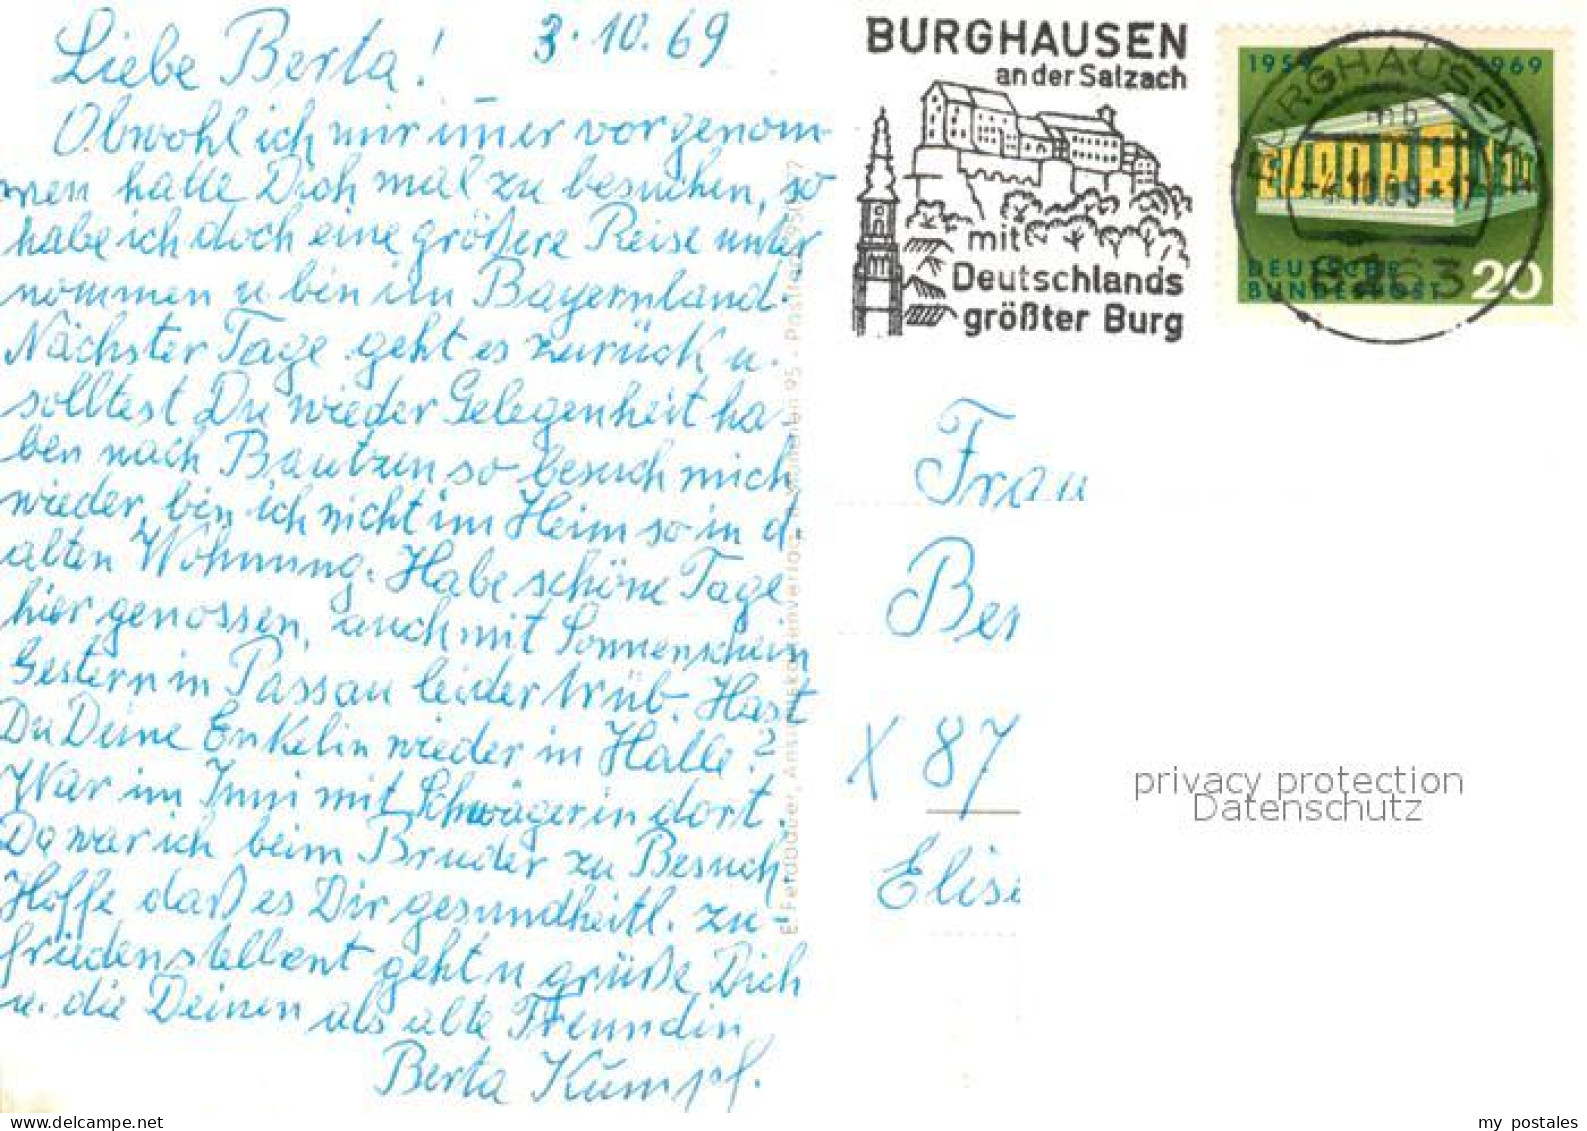 3.10.69
Liebe Berta!
Obwohl ich mir imer vorgenom-
men hatte Dich mal zu besuchen, so
habe ich doch eine größere Reise unter
nommen u. bin im Bayernland.
Nächster Tage geht es zurück u.
solltest Du wieder Gelegenheit ha-
ben nach Bautzen so besuch mich
wieder, bin ich nicht im Heim so in d.
alten Wohnung. Habe schöne Tage
hier genossen, auch mit Sonnenschein
Gestern in Passau leider trüb. Hast
Du Deine Enkelin wieder in Halle?
War im Juni mit Schwägerin dort.
Da war ich beim Bruder zu Besuch
Hoffe daß es Dir gesundheitl. zu-
friedenstellent geht u grüße Dich
u. die Deinen als alte Freundin
Berta Kumpf.
München 95 - Postfach
BURGHAUSEN
an der Salzach
mit
Deutschlands
größter Burg
BURGHAUSEN
mb
-4.10.69-17
8263
1959 1969
EUROPA CEPT
DEUTSCHE
BUNDESPOST 20
Frau
Ber
X 87
Elise
privacy protection
Datenschutz
www.delcampe.net
my_postales